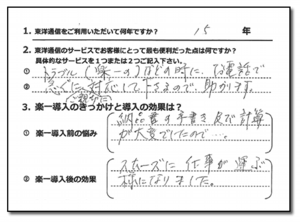 1. 東洋通信をご利用いただいて何年ですか？ 15 年
2. 東洋通信のサービスでお客様にとって最も便利だった点は何ですか？
具体的なサービスを1つまたは2つご記入下さい。
① トラブル(楽一の)などの時に、お電話で
② 急ぐに対応して下さるので、助かります。
(親切に)
3. 楽一導入のきっかけと導入の効果は？
① 楽一導入前の悩み
納品書の手書き及び計算
が大変でしたので…。
② 楽一導入後の効果
スムーズに仕事が運ぶ
様になりました。